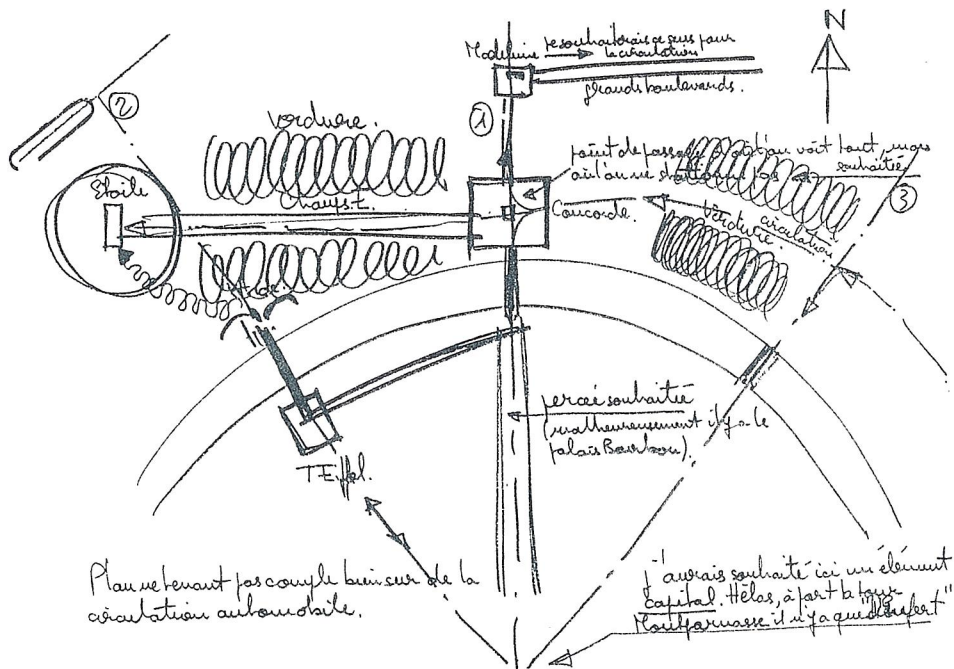 N
Madeleine
je souhaiterais ce sens pour
la circulation
grands boulevards.
2
1
verdure.
point de passage
où l'on voit tout, mais
où l'on ne stationne pas
souhaitée
3
Etoile
Champs
Concorde.
verdure.
circulation
percée souhaitée
(malheureusement il y a le
palais Bourbon).
T Eiffel.
Plan ne tenant pas compte bien sur de la
circulation automobile.
j'aurais souhaité ici un élément
capital. Hélas, à part la tour
Montparnasse il n'y a que "Denfert"